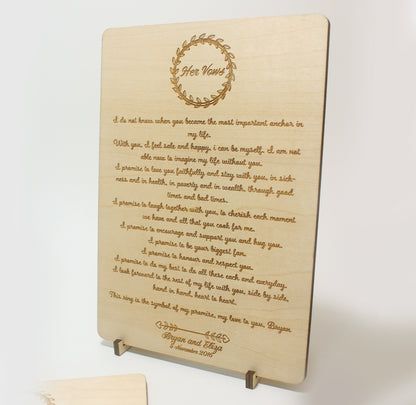 Her Vows
I do not know when you became the most important anchor in
my life.
With you, I feel safe and happy, i can be myself. I am not
able now to imagine my life without you.
I promise to love you faithfully and stay with you, in sick-
ness and in health, in poverty and in wealth, through good
times and bad times.
I promise to laugh together with you, to cherish each moment
we have and all that you cook for me.
I promise to encourage and support you and hug you.
I promise to be your biggest fan.
I promise to honour and respect you.
I promise to do my best to do all these each and everyday.
I look forward to the rest of my life with you, side by side,
hand in hand, heart to heart.
This ring is the symbol of my promise, my love to you, Bryan
Bryan and Eliza
5 November 2016